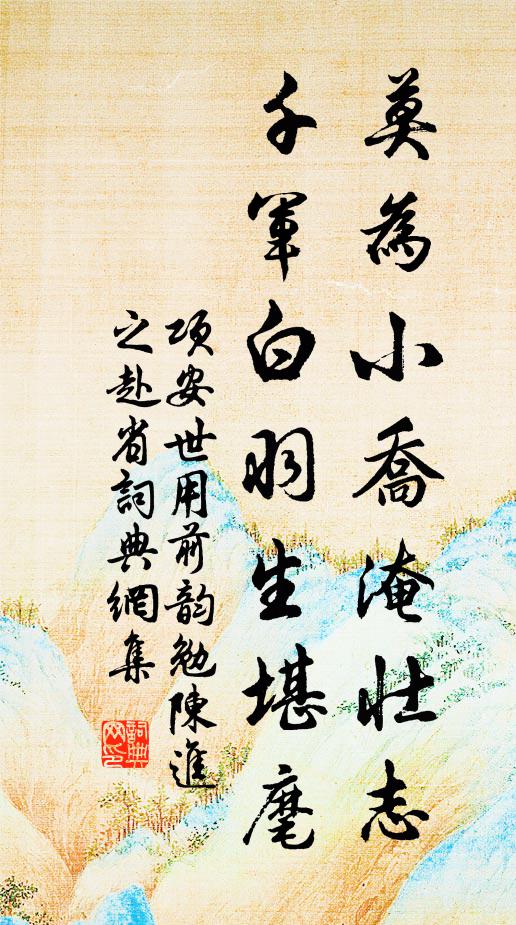 莫為小喬淹壯志
千軍白羽生堪麾
項安世用前韵勉陳進
之赴省詞典網集
詞典網印